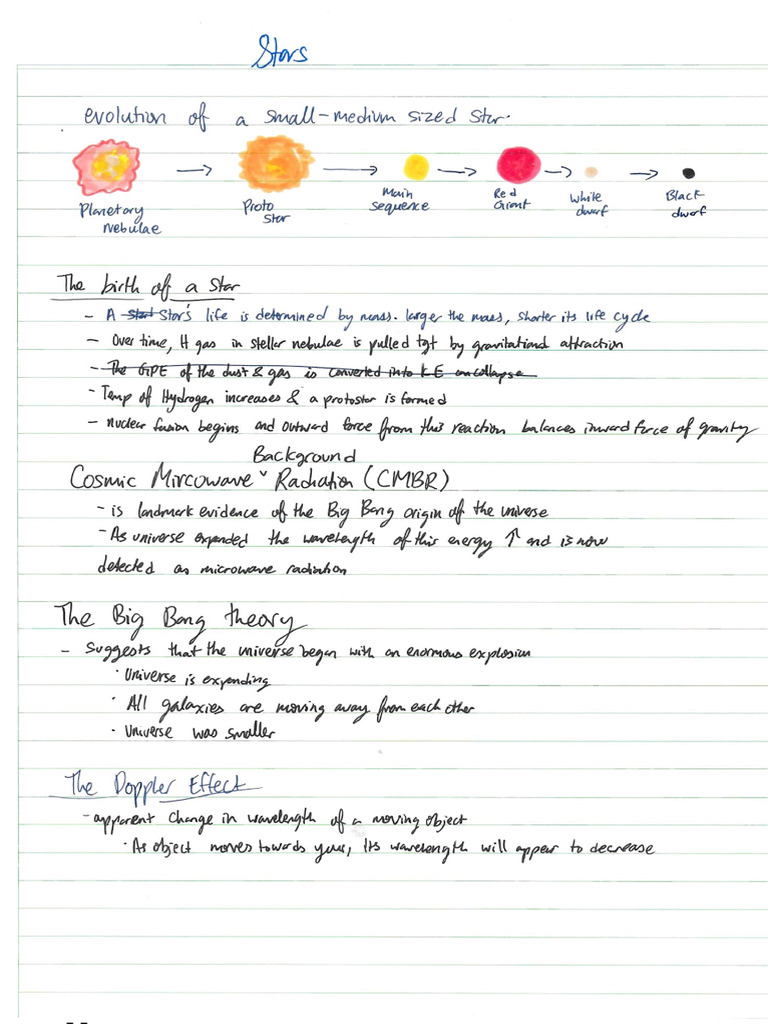 Stars
evolution of a small-medium sized star.
Planetary
nebulae
Proto
star
Main
sequence
Red
Giant
White
dwarf
Black
dwarf
The birth of a star
- A Star's life is determined by mass. larger the mass, shorter its life cycle
- Over time, H gas in stellar nebulae is pulled tgt by gravitational attraction
- The GPE of the dust & gas is converted into KE on collapse
- Temp of Hydrogen increases & a protostar is formed
- nuclear fusion begins and outward force from this reaction balances inward force of gravity
Background
Cosmic Mircowave ˅ Radiation (CMBR)
- is landmark evidence of the Big Bang origin of the universe
- As universe expanded the wavelength of this energy ↑ and is now
detected as microwave radiation
The Big Bang theory
- suggests that the universe began with an enormous explosion
· Universe is expanding
· All galaxies are moving away from each other
· Universe was smaller
The Doppler Effect
- apparent change in wavelength of a moving object
· As object moves towards you, its wavelength will appear to decrease